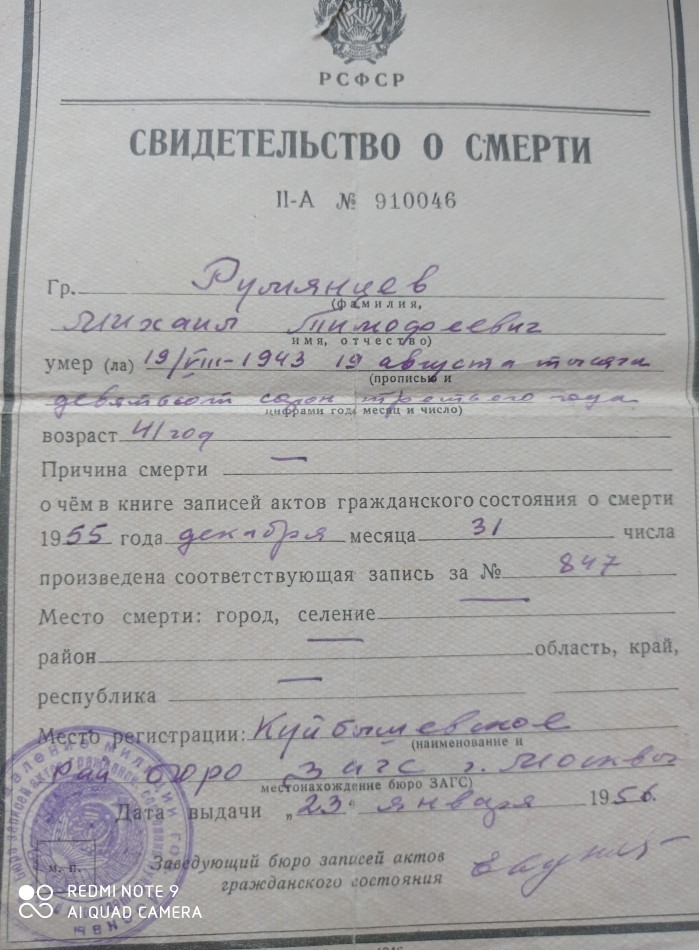 РСФСР
СВИДЕТЕЛЬСТВО О СМЕРТИ
II-А № 910046
Гр. Румянцев
(фамилия,
Михаил Тимофеевич
имя, отчество)
умер (ла) 19/VIII-1943 19 августа тысяча
(прописью и
девятьсот сорок третьего года
цифрами год, месяц и число)
возраст 41 год
Причина смерти —
о чём в книге записей актов гражданского состояния о смерти
1955 года декабря месяца 31 числа
произведена соответствующая запись за № 847
Место смерти: город, селение —
район — область, край,
республика —
Место регистрации: Куйбышевское
(наименование и
рай бюро ЗАГС г. Москвы
местонахождение бюро ЗАГС)
Дата выдачи „23“ января 1956.
Заведующий бюро записей актов
гражданского состояния
м. п.
REDMI NOTE 9
AI QUAD CAMERA